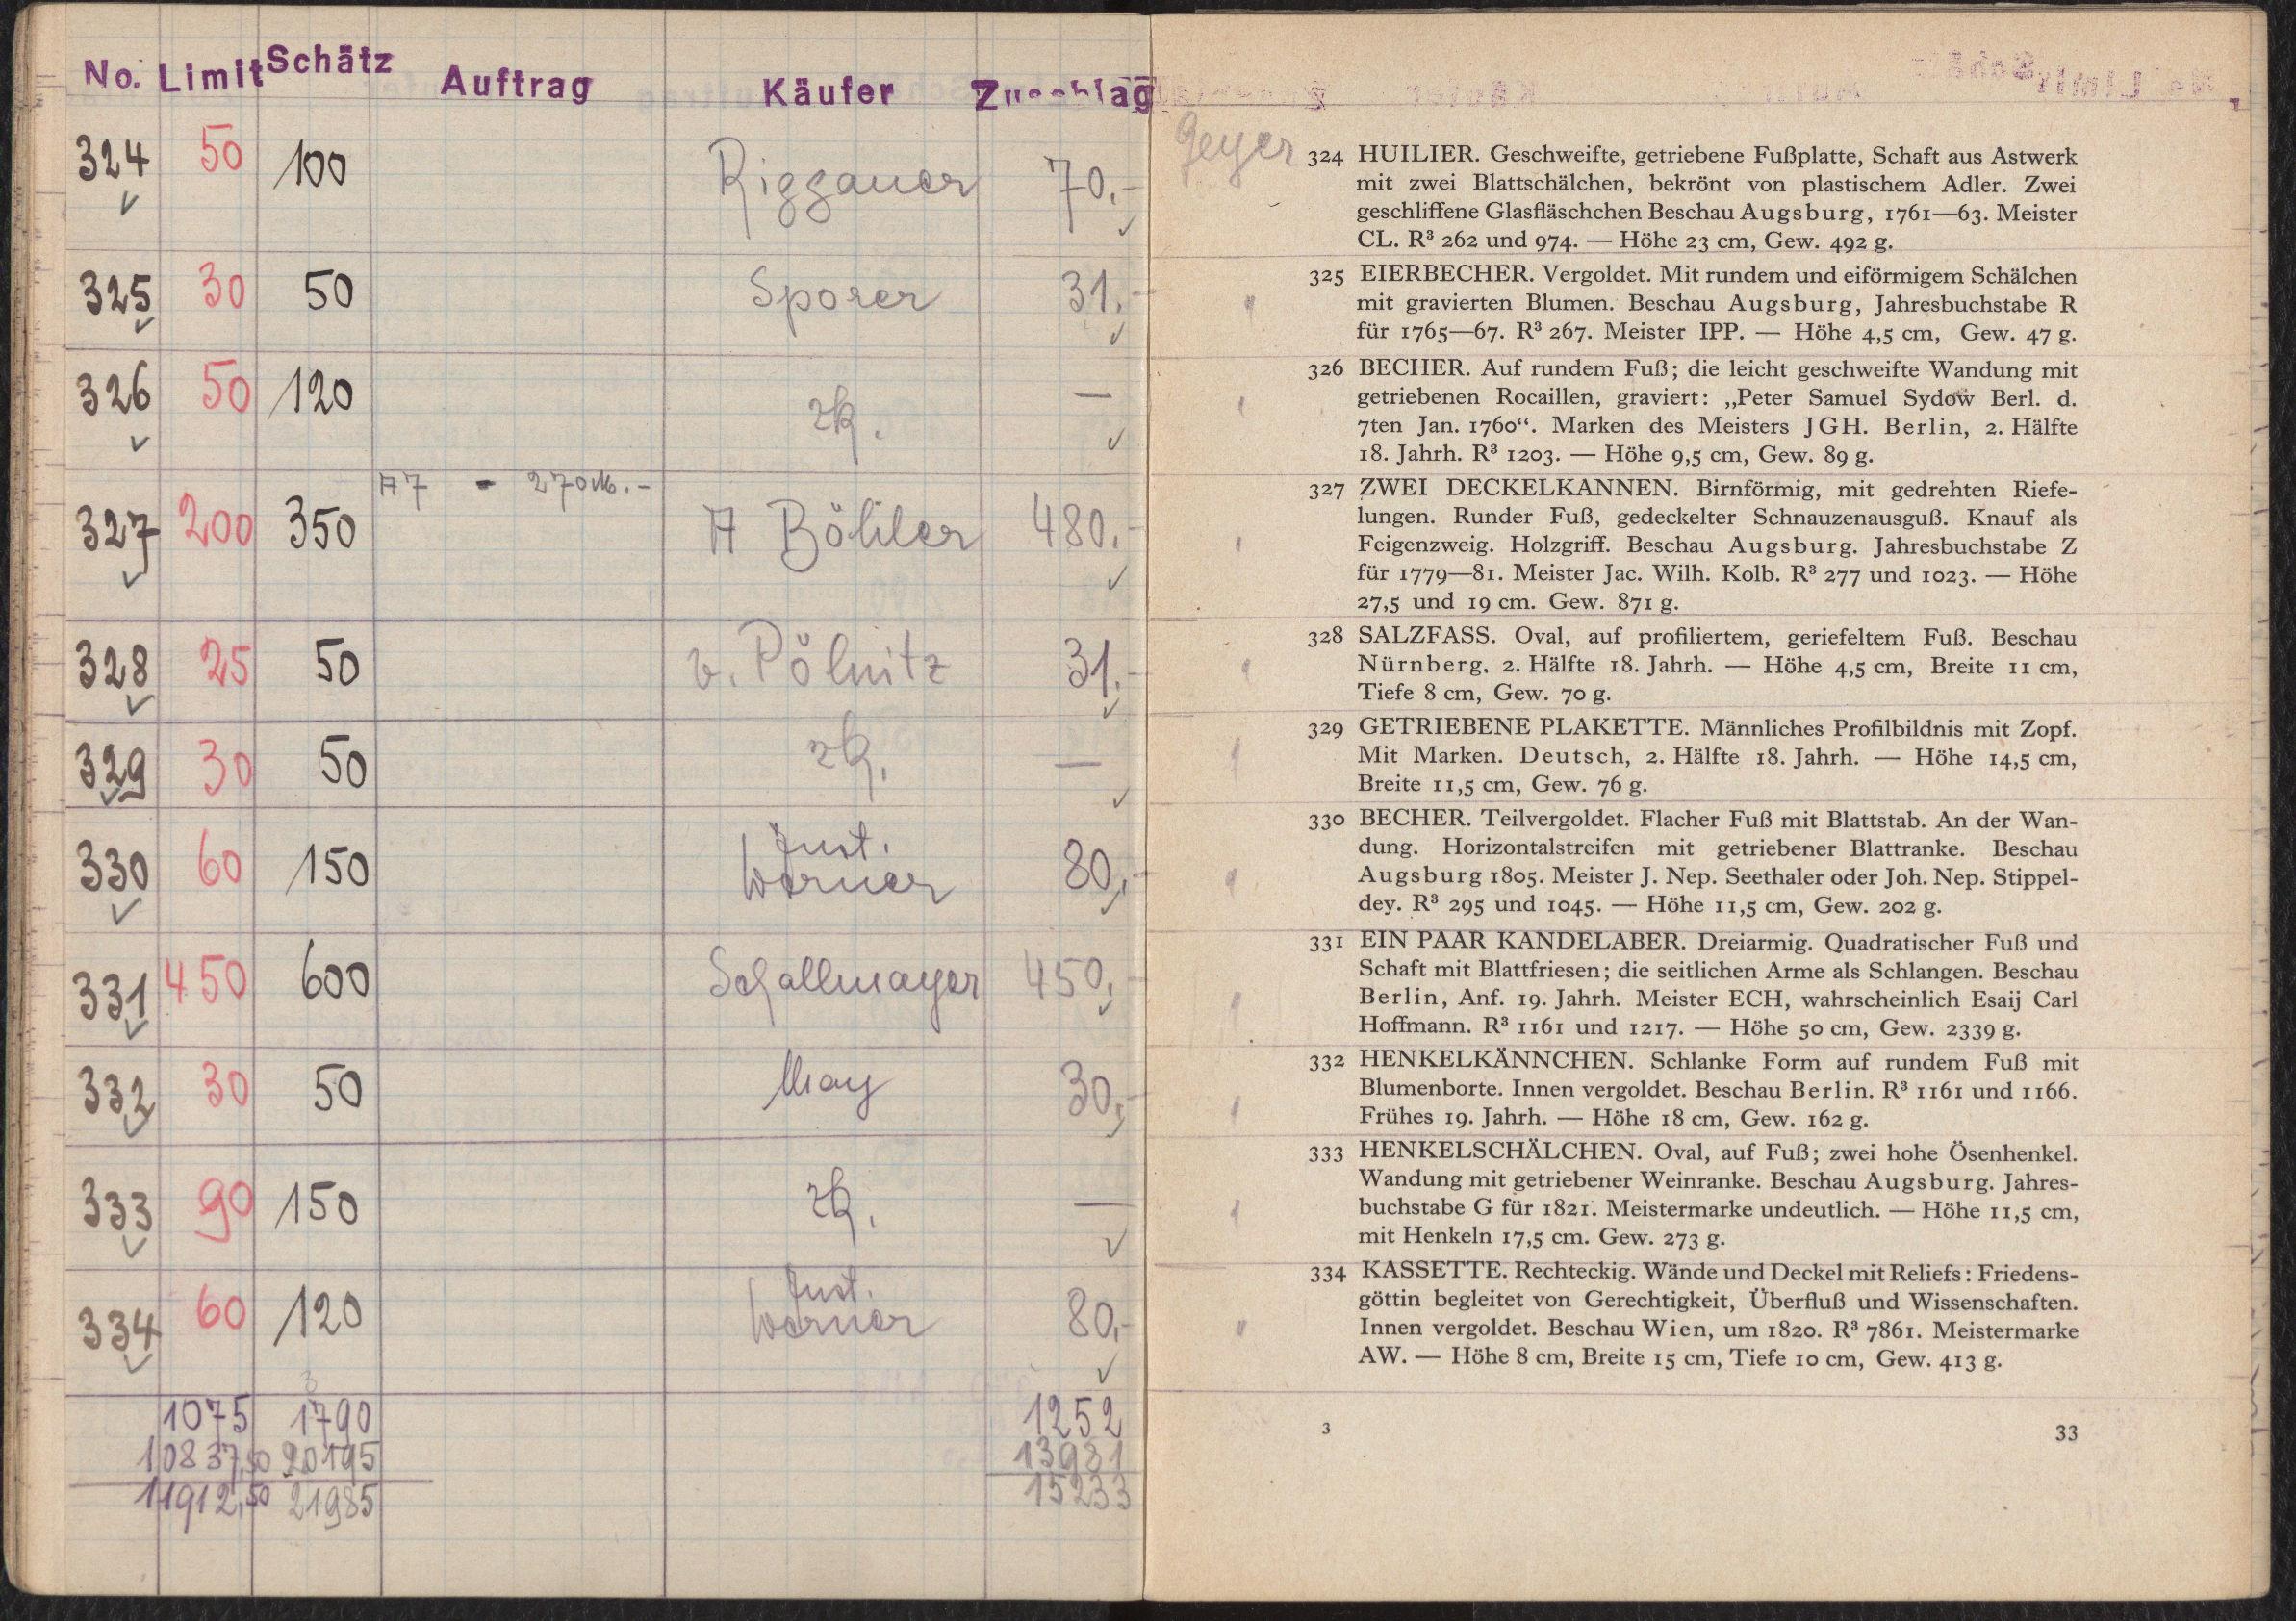 No. Limit Schätz Auftrag Käufer Zuschlag
324 50 100 Riggauer 70,-
325 30 50 Sporer 31,-
326 50 120 zk. —
A7 - 270 M.-
327 200 350 A Böhler 480,-
328 25 50 v. Pölnitz 31,-
329 30 50 zk. —
330 60 150 Just. Werner 80,-
331 450 600 Schallmayer 450,-
332 30 50 May 30,-
333 90 150 zk. —
334 60 120 Just. Werner 80,-
1075 1790 1252
10837,50 20195 13981
11912,50 21985 15233
Geyer
324 HUILIER. Geschweifte, getriebene Fußplatte, Schaft aus Astwerk
mit zwei Blattschälchen, bekrönt von plastischem Adler. Zwei
geschliffene Glasfläschchen Beschau Augsburg, 1761—63. Meister
CL. R³ 262 und 974. — Höhe 23 cm, Gew. 492 g.
325 EIERBECHER. Vergoldet. Mit rundem und eiförmigem Schälchen
mit gravierten Blumen. Beschau Augsburg, Jahresbuchstabe R
für 1765—67. R³ 267. Meister IPP. — Höhe 4,5 cm, Gew. 47 g.
326 BECHER. Auf rundem Fuß; die leicht geschweifte Wandung mit
getriebenen Rocaillen, graviert: „Peter Samuel Sydow Berl. d.
7ten Jan. 1760“. Marken des Meisters JGH. Berlin, 2. Hälfte
18. Jahrh. R³ 1203. — Höhe 9,5 cm, Gew. 89 g.
327 ZWEI DECKELKANNEN. Birnförmig, mit gedrehten Riefe-
lungen. Runder Fuß, gedeckelter Schnauzenausguß. Knauf als
Feigenzweig. Holzgriff. Beschau Augsburg. Jahresbuchstabe Z
für 1779—81. Meister Jac. Wilh. Kolb. R³ 277 und 1023. — Höhe
27,5 und 19 cm. Gew. 871 g.
328 SALZFASS. Oval, auf profiliertem, geriefeltem Fuß. Beschau
Nürnberg, 2. Hälfte 18. Jahrh. — Höhe 4,5 cm, Breite 11 cm,
Tiefe 8 cm, Gew. 70 g.
329 GETRIEBENE PLAKETTE. Männliches Profilbildnis mit Zopf.
Mit Marken. Deutsch, 2. Hälfte 18. Jahrh. — Höhe 14,5 cm,
Breite 11,5 cm, Gew. 76 g.
330 BECHER. Teilvergoldet. Flacher Fuß mit Blattstab. An der Wan-
dung. Horizontalstreifen mit getriebener Blattranke. Beschau
Augsburg 1805. Meister J. Nep. Seethaler oder Joh. Nep. Stippel-
dey. R³ 295 und 1045. — Höhe 11,5 cm, Gew. 202 g.
331 EIN PAAR KANDELABER. Dreiarmig. Quadratischer Fuß und
Schaft mit Blattfriesen; die seitlichen Arme als Schlangen. Beschau
Berlin, Anf. 19. Jahrh. Meister ECH, wahrscheinlich Esaij Carl
Hoffmann. R³ 1161 und 1217. — Höhe 50 cm, Gew. 2339 g.
332 HENKELKÄNNCHEN. Schlanke Form auf rundem Fuß mit
Blumenborte. Innen vergoldet. Beschau Berlin. R³ 1161 und 1166.
Frühes 19. Jahrh. — Höhe 18 cm, Gew. 162 g.
333 HENKELSCHÄLCHEN. Oval, auf Fuß; zwei hohe Ösenhenkel.
Wandung mit getriebener Weinranke. Beschau Augsburg. Jahres-
buchstabe G für 1821. Meistermarke undeutlich. — Höhe 11,5 cm,
mit Henkeln 17,5 cm. Gew. 273 g.
334 KASSETTE. Rechteckig. Wände und Deckel mit Reliefs: Friedens-
göttin begleitet von Gerechtigkeit, Überfluß und Wissenschaften.
Innen vergoldet. Beschau Wien, um 1820. R³ 7861. Meistermarke
AW. — Höhe 8 cm, Breite 15 cm, Tiefe 10 cm, Gew. 413 g.
3 33